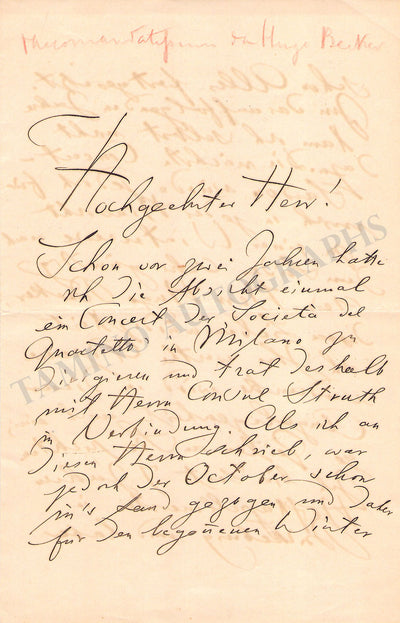 Raccomandatissimo da Hugo Becker
Hochgeehrter Herr!
Schon vor zwei Jahren hatte
ich die Absicht einmal
ein Concert der Società del
Quartetto in Milano zu
dirigieren und trat deshalb
mit Herrn Consul Struth
in Verbindung. Als ich an
diesen Herrn schrieb, war
jedoch der October schon
in's Land gezogen und daher
für den begonnenen Winter
TAMINO AUTOGRAPHS